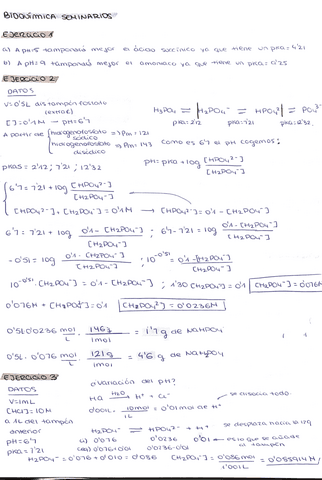 BIOQUÍMICA SEMINARIOS
EJERCICIO 1
a) A pH=5 tamponará mejor el ácido succínico ya que tiene un pKa=4'21
b) A pH=9 tamponará mejor el amoniaco ya que tiene un pKa=9'25
EJERCICIO 2
DATOS
V=0'5L dis tampón fosfato
[ ]=0'1M → pH=6'7
H3PO4 ⇌ H2PO4⁻ ⇌ HPO4²⁻ ⇌ PO4³⁻
pKa=2'12 pKa=7'21 pKa=12'32
A partir de
hidrogenofosfato → Pm=121
disódico → Pm=143
Como es 6'7 el pH cogemos:
pKas = 2'12; 7'21; 12'32
pH = pKa + log [HPO4²⁻]/[H2PO4⁻]
6'7 = 7'21 + log [HPO4²⁻]/[H2PO4⁻]
[HPO4²⁻] + [H2PO4⁻] = 0'1M → [HPO4²⁻] = 0'1 - [H2PO4⁻]
6'7 = 7'21 + log 0'1-[H2PO4⁻]/[H2PO4⁻] ; 6'7-7'21 = log 0'1-[H2PO4⁻]/[H2PO4⁻]
-0'51 = log 0'1-[H2PO4⁻]/[H2PO4⁻] ; 10^-0'51 = 0'1-[H2PO4⁻]/[H2PO4⁻]
10^-0'51 · [H2PO4⁻] = 0'1 - [H2PO4⁻] ; 1'30 [H2PO4⁻] = 0'1 [H2PO4⁻] = 0'076M
0'076M + [H2PO4⁻] = 0'1 [HPO4²⁻] = 0'0236M
0'5L · 0'0236 mol/L · 146g/1mol = 1'7g de Na2HPO4
0'5L · 0'076 mol/L · 121g/1mol = 4'6g de NaH2PO4
EJERCICIO 3
DATOS
V=1mL
[HCl]=10M
a 1L del tampón
anterior
pH=6'7
pKa=7'21
¿Variación del pH?
HA → H⁺ + Cl⁻
se disocia todo
0'001L · 10mol/1L = 0'01 mol de H⁺
se desplaza hacia la izq
H2PO4⁻ ⇌ HPO4²⁻ + H⁺
0'076 0'0236 0'01 → es lo que se añade al tampón
H2PO4⁻ = 0'076 + 0'010 = 0'086 [H2PO4⁻] = 0'086mol/1'001L = 0'085914M